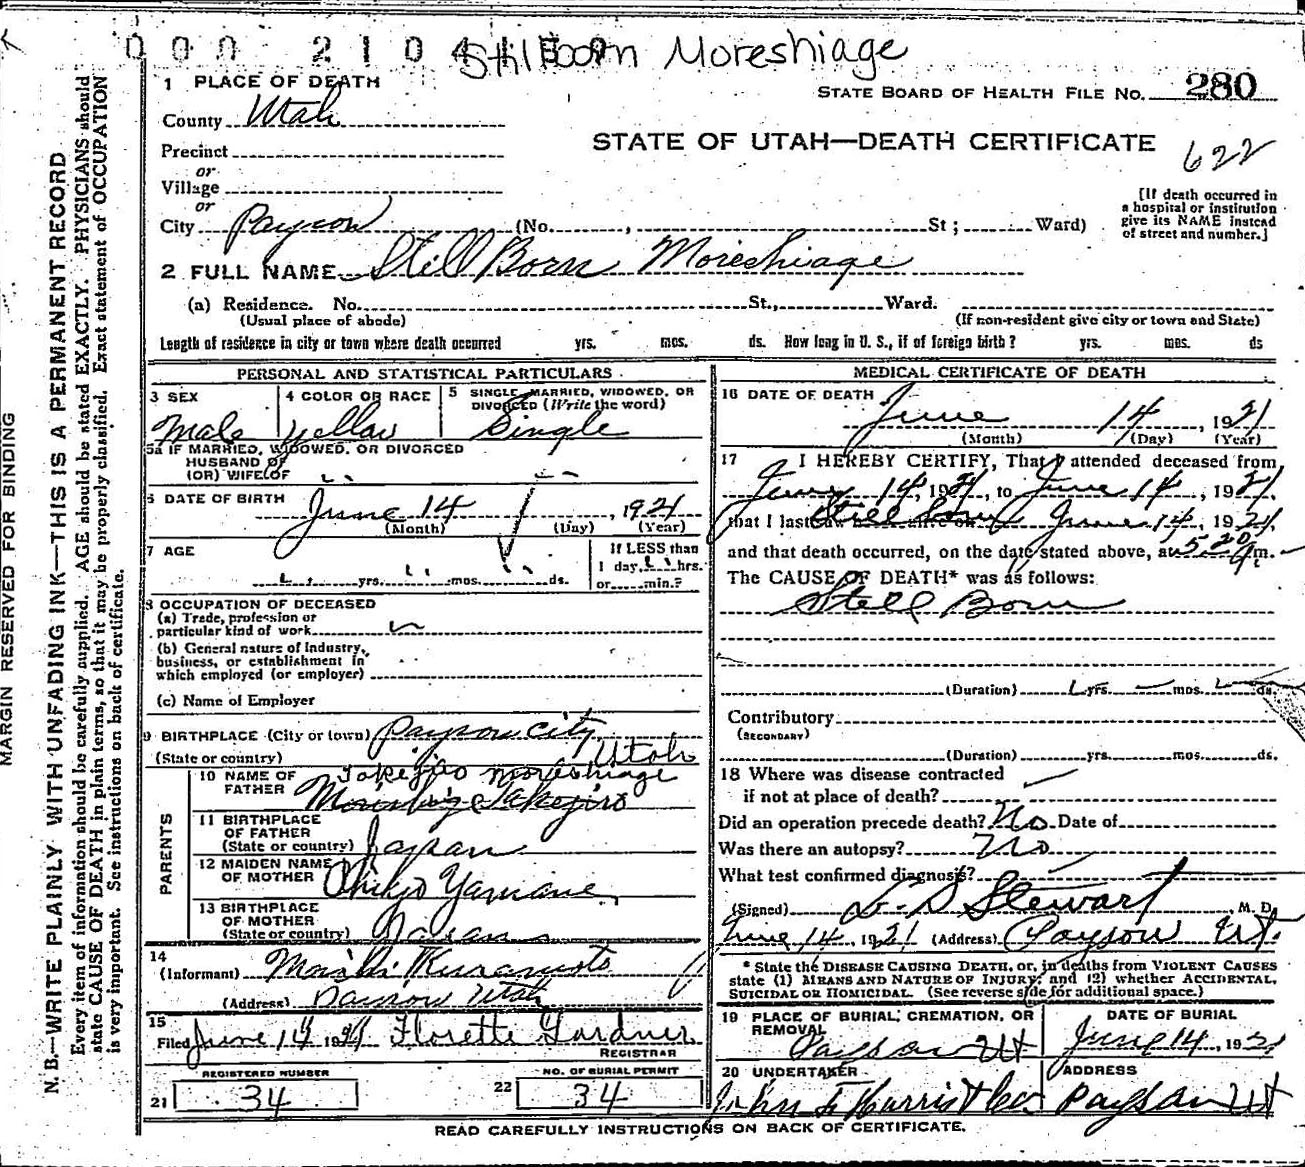 000 21041
Stillborn Moreshiage
1 PLACE OF DEATH
STATE BOARD OF HEALTH FILE No. 280
County Utah
STATE OF UTAH—DEATH CERTIFICATE
622
Precinct
or
Village
or
City Payson (No. , St ; Ward)
[If death occurred in
a hospital or institution
give its NAME instead
of street and number.]
2 FULL NAME Still Born Moreshiage
(a) Residence. No. St., Ward.
(Usual place of abode) (If non-resident give city or town and State)
Length of residence in city or town where death occurred yrs. mos. ds. How long in U. S., if of foreign birth? yrs. mos. ds
PERSONAL AND STATISTICAL PARTICULARS
3 SEX
Male
4 COLOR OR RACE
Yellow
5 SINGLE, MARRIED, WIDOWED, OR
DIVORCED (Write the word)
Single
5a IF MARRIED, WIDOWED, OR DIVORCED
HUSBAND OF
(OR) WIFE OF
6 DATE OF BIRTH
June 14, 1921
(Month) (Day) (Year)
7 AGE
yrs. mos. ds.
If LESS than
1 day, hrs.
or min.?
8 OCCUPATION OF DECEASED
(a) Trade, profession or
particular kind of work
(b) General nature of Industry,
business, or establishment in
which employed (or employer)
(c) Name of Employer
9 BIRTHPLACE (City or town) Payson City
(State or country) Utah
PARENTS
10 NAME OF
FATHER
Takejiro Moreshiage
11 BIRTHPLACE
OF FATHER
(State or country) Japan
12 MAIDEN NAME
OF MOTHER Yamane
13 BIRTHPLACE
OF MOTHER
(State or country) Japan
14
(Informant) Kuramoto
(Address) Payson Utah
15
Filed June 14 1921 Florette Gardner
REGISTRAR
REGISTERED NUMBER
21 34
NO. OF BURIAL PERMIT
22 34
MEDICAL CERTIFICATE OF DEATH
16 DATE OF DEATH
June 14, 1921
(Month) (Day) (Year)
17 I HEREBY CERTIFY, That I attended deceased from
June 14, 1921, to June 14, 1921,
that I last saw h alive on June 14, 1921,
Still Born
and that death occurred, on the date stated above, at 520 m.
The CAUSE OF DEATH* was as follows:
Still Born
(Duration) yrs. mos. ds.
Contributory
(SECONDARY)
(Duration) yrs. mos. ds.
18 Where was disease contracted
if not at place of death?
Did an operation precede death? No Date of
Was there an autopsy? No
What test confirmed diagnosis?
(Signed) Stewart M. D.
June 14, 1921 (Address) Payson Ut.
* State the DISEASE CAUSING DEATH, or, in deaths from VIOLENT CAUSES
state (1) MEANS AND NATURE OF INJURY; and (2) whether ACCIDENTAL,
SUICIDAL OR HOMICIDAL. (See reverse side for additional space.)
19 PLACE OF BURIAL, CREMATION, OR
REMOVAL
Payson Ut
DATE OF BURIAL
June 14, 1921
20 UNDERTAKER
John F Harris & Co.
ADDRESS
Payson Ut
READ CAREFULLY INSTRUCTIONS ON BACK OF CERTIFICATE.
MARGIN RESERVED FOR BINDING
N. B.—WRITE PLAINLY WITH UNFADING INK—THIS IS A PERMANENT RECORD
Every item of information should be carefully supplied. AGE should be stated EXACTLY. PHYSICIANS should
state CAUSE OF DEATH in plain terms, so that it may be properly classified. Exact statement of OCCUPATION
is very important. See instructions on back of certificate.